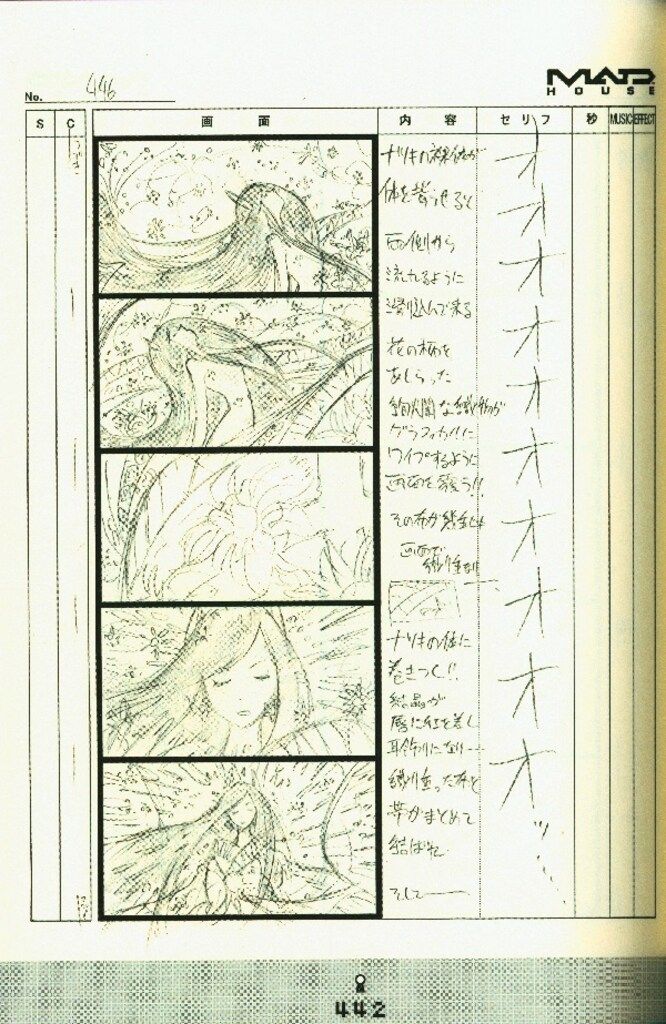 No. 446
MAD HOUSE
S C 画面 内容 セリフ 秒 MUSIC EFFECT
ナツキの裸体が
体を
両側から
流れるように
滑り込んで来る
花の柄を
あしらった
絢爛な織物が
グラフィカルに
ワイプするように
画面を覆う!!
その布が
画面で
ナツキの体に
巻きつく!!
結晶が
唇に紅を差し
耳飾りになり
織り重った布と
帯がまとめて
結ばれ
そして——
オ
オ
オ
オ
オ
オ
オ
オ
オ
オ
ッ
442